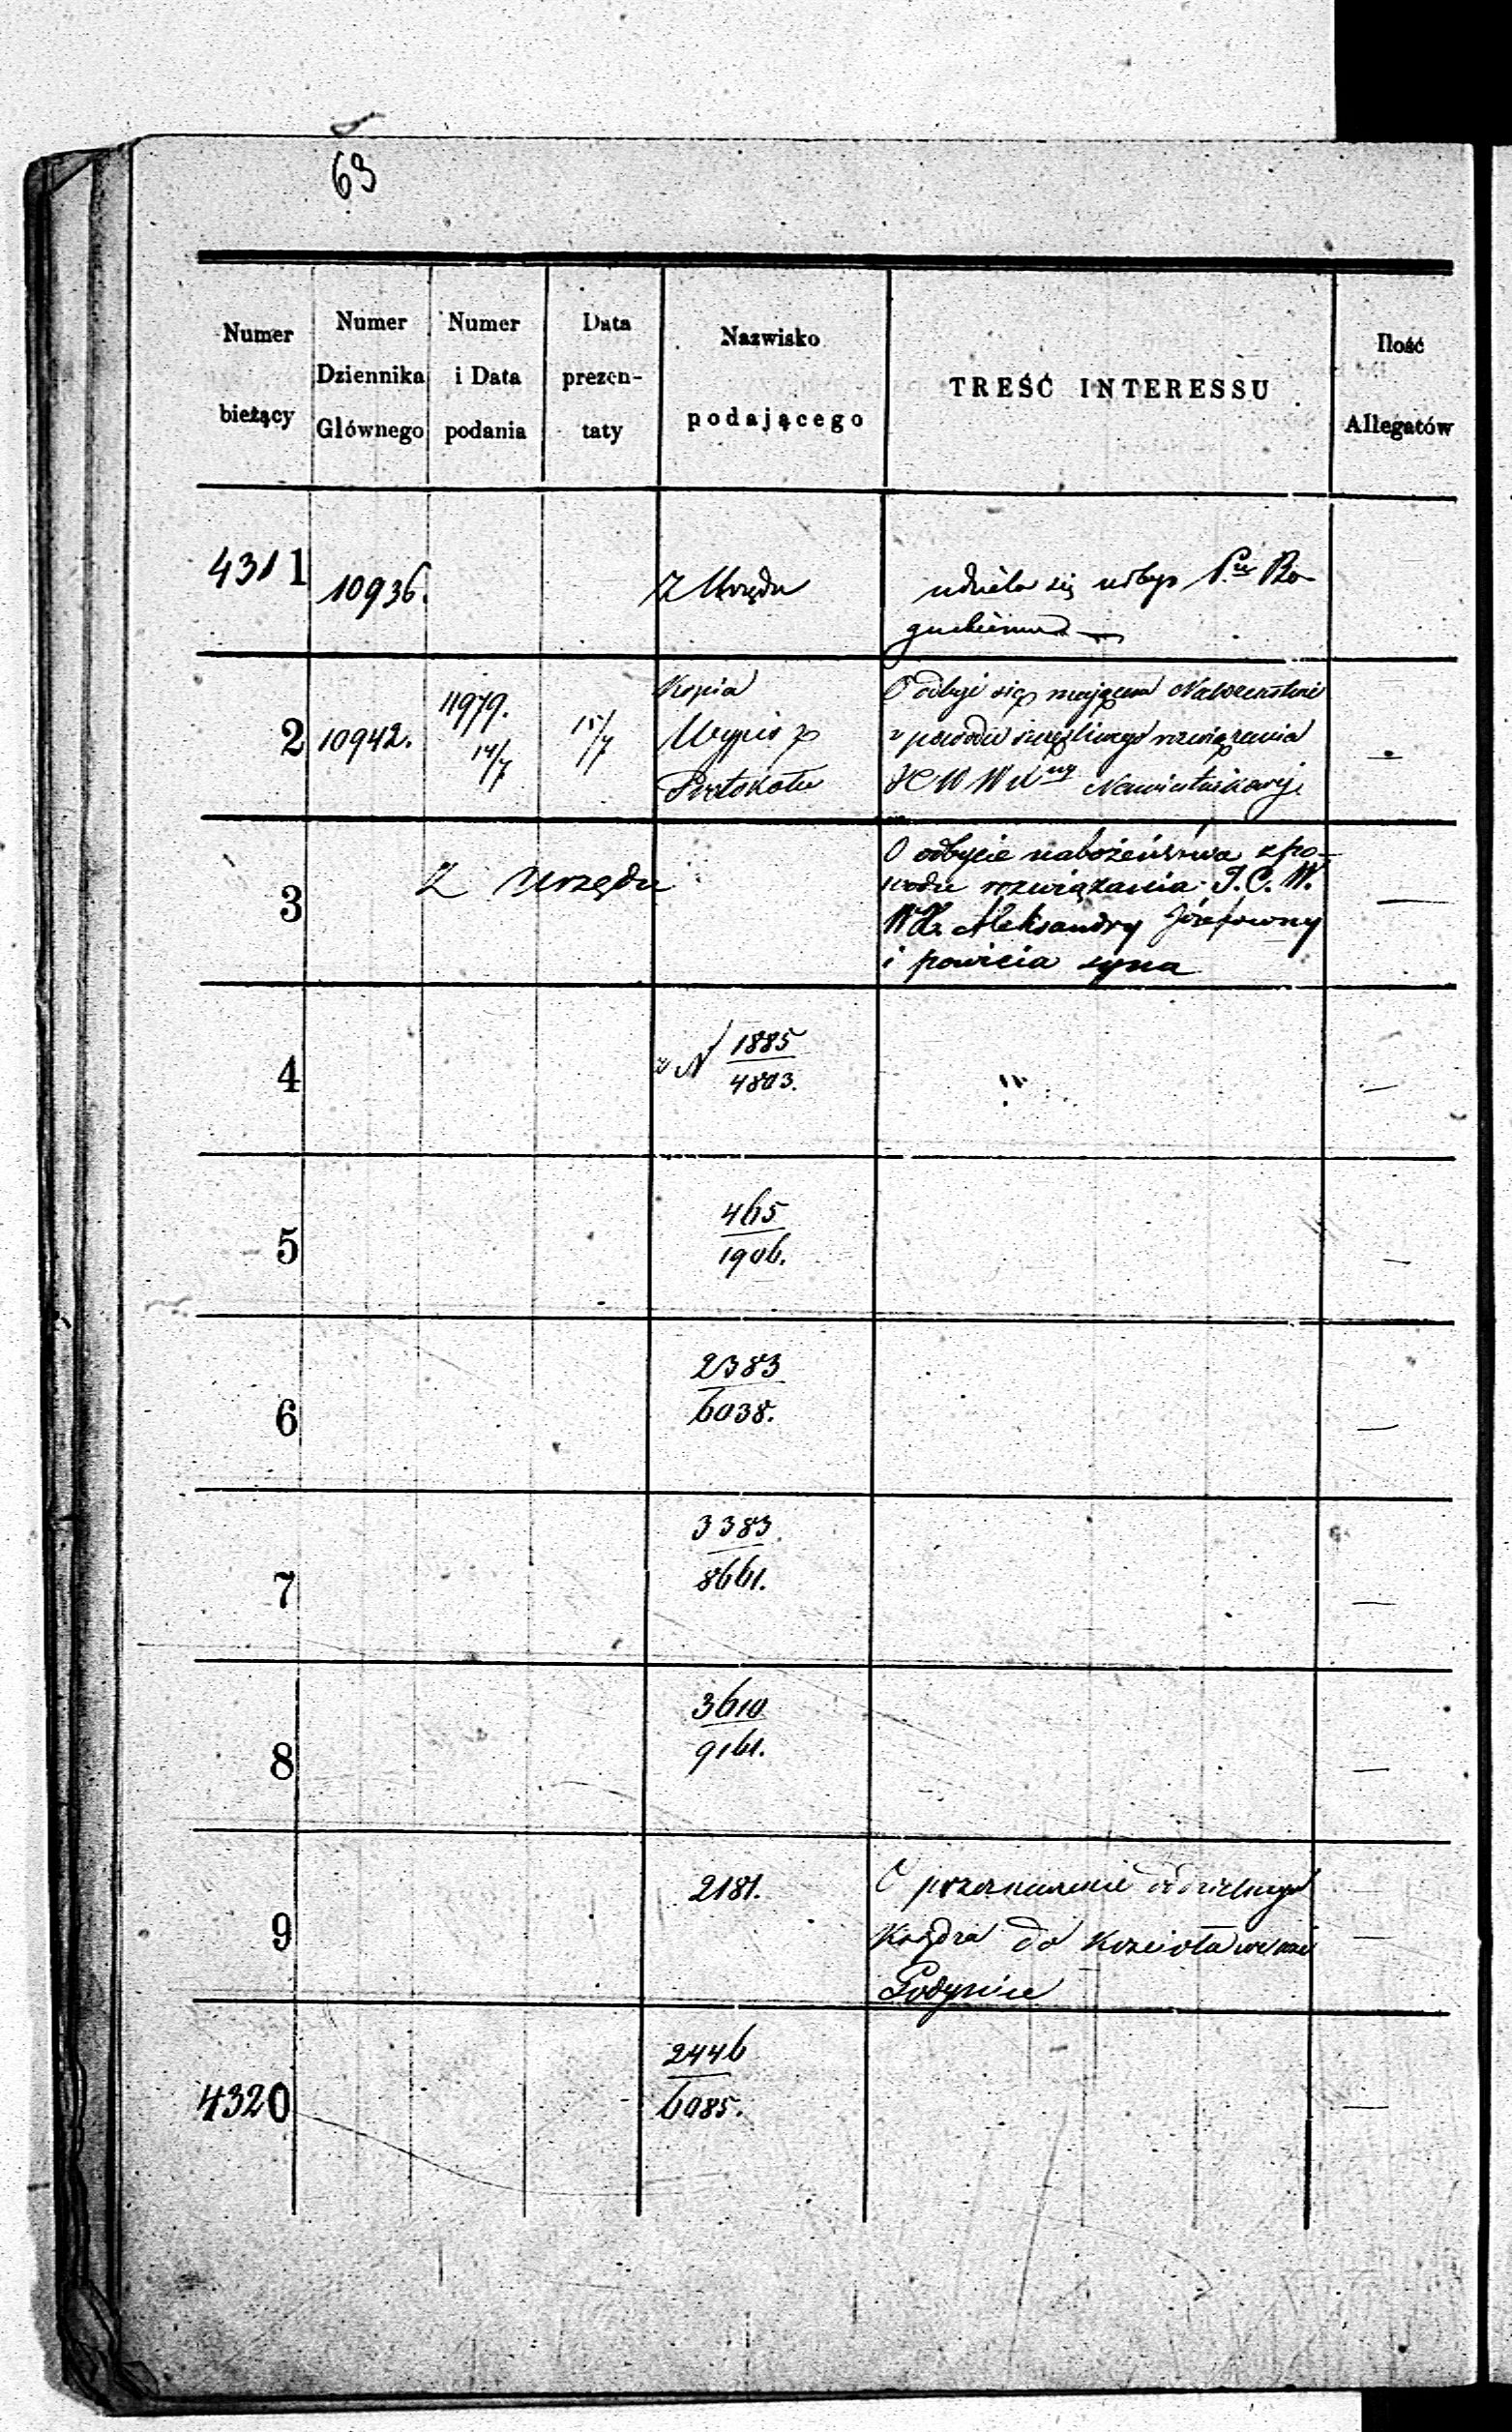 69
Numer bieżący
Numer Dziennika Głównego
Numer i Data podania
Data prezen- taty
Nazwisko podającego
TREŚĆ INTERESSU
Ilość Allegatów
4311 10936. Z Urzędu udziela się urlop Ro-
guskiemu —
2 10942. 11979. 14/7 15/7 Kopia
Wypis z
Protokołu
O odbyć się mającem Nabożenstwie
z powodu szczęśliwego rozwiązania
3 Z Urzędu
O odbycie nabożeństwa z po-
wodu rozwiązania J. C. W.
W Ks. Aleksandry Józefowny
i powicia syna —
4 z N 1885/4803. " —
5 465/1906. —
6 2383/6038. —
7 3383/8661. —
8 3610/9161. —
9 2181. O przeznaczenie oddzielnego —
Księdza do Kościoła we wsi
4320 2446/6085. —